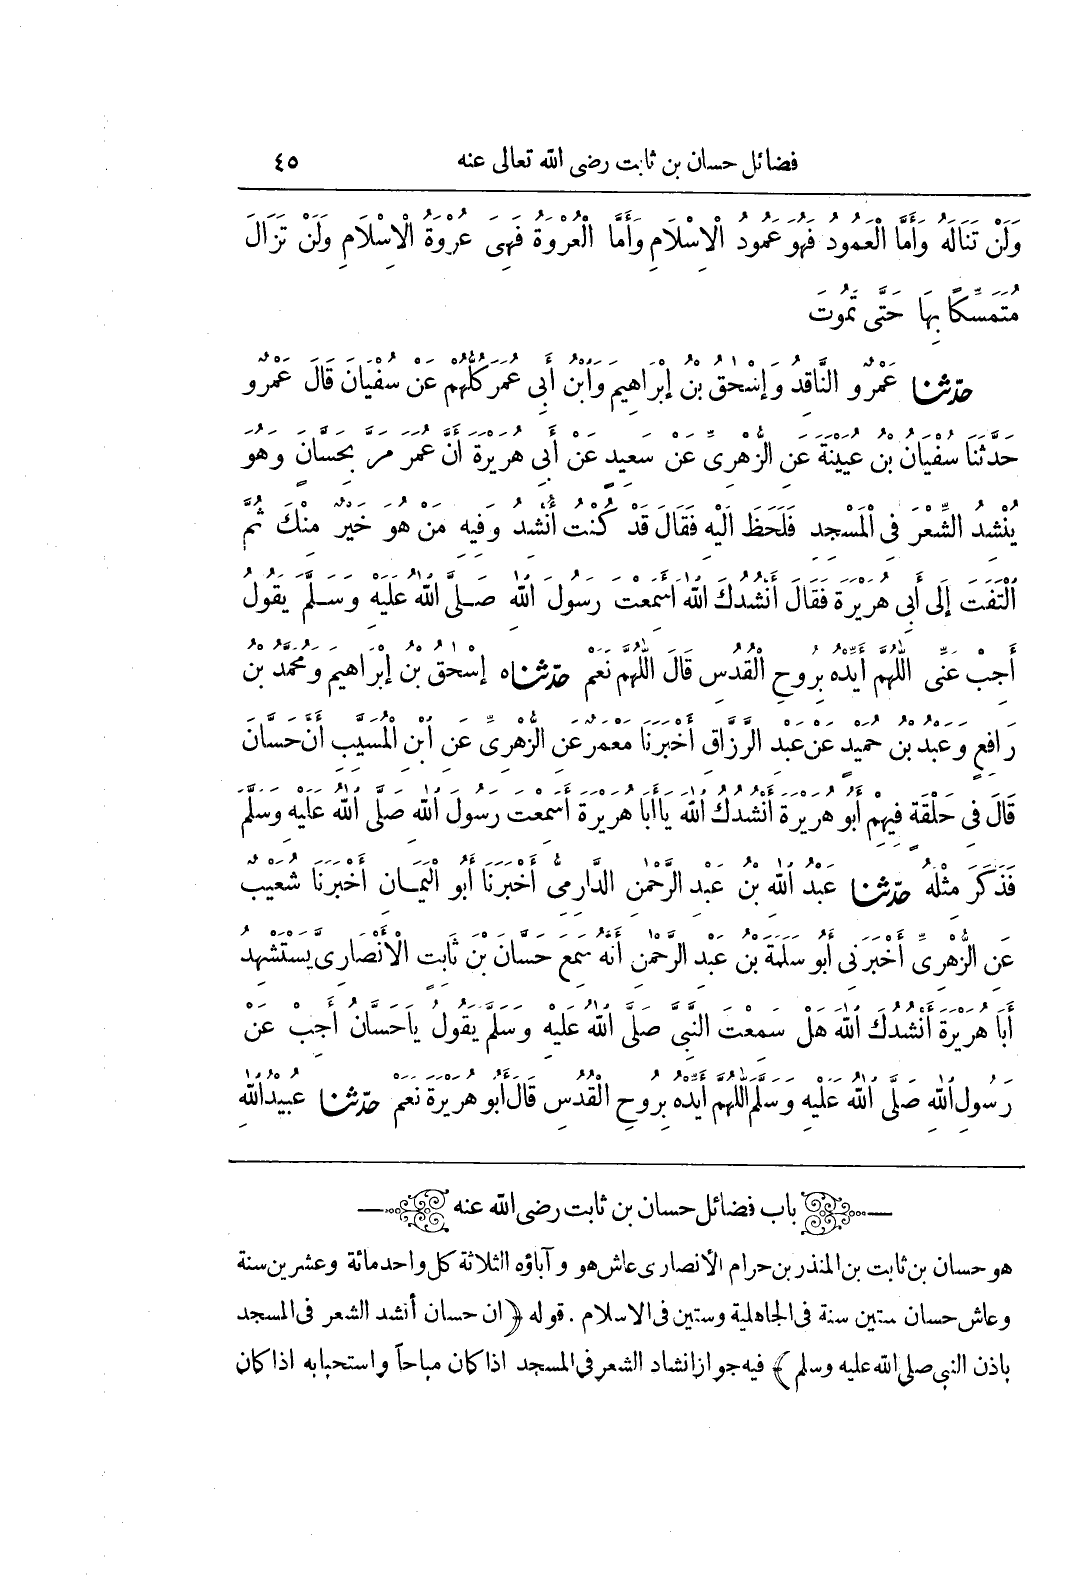 فضائل حسان بن ثابت رضى الله تعالى عنه ٤٥
وَلَنْ تَنَالَهُ وَأَمَّا الْعَمُودُ فَهُوَ عَمُودُ الْإِسْلَامِ وَأَمَّا الْعُرْوَةُ فَهِىَ عُرْوَةُ الْإِسْلَامِ وَلَنْ تَزَالَ
مُتَمَسِّكًا بِهَا حَتَّى تَمُوتَ
حدّثنا عَمْرٌو النَّاقِدُ وَإِسْحٰقُ بْنُ إِبْرَاهِيمَ وَابْنُ أَبِى عُمَرَ كُلُّهُمْ عَنْ سُفْيَانَ قَالَ عَمْرٌو
حَدَّثَنَا سُفْيَانُ بْنُ عُيَيْنَةَ عَنِ الزُّهْرِىِّ عَنْ سَعِيدٍ عَنْ أَبِى هُرَيْرَةَ أَنَّ عُمَرَ مَرَّ بِحَسَّانَ وَهُوَ
يُنْشِدُ الشِّعْرَ فِى الْمَسْجِدِ فَلَحَظَ إِلَيْهِ فَقَالَ قَدْ كُنْتُ أُنْشِدُ وَفِيهِ مَنْ هُوَ خَيْرٌ مِنْكَ ثُمَّ
الْتَفَتَ إِلَى أَبِى هُرَيْرَةَ فَقَالَ أَنْشُدُكَ اللهَ أَسَمِعْتَ رَسُولَ اللهِ صَلَّى اللهُ عَلَيْهِ وَسَلَّمَ يَقُولُ
أَجِبْ عَنِّى اللّٰهُمَّ أَيِّدْهُ بِرُوحِ الْقُدُسِ قَالَ اللّٰهُمَّ نَعَمْ حدّثناه إِسْحٰقُ بْنُ إِبْرَاهِيمَ وَمُحَمَّدُ بْنُ
رَافِعٍ وَعَبْدُ بْنُ حُمَيْدٍ عَنْ عَبْدِ الرَّزَّاقِ أَخْبَرَنَا مَعْمَرٌ عَنِ الزُّهْرِىِّ عَنِ ابْنِ الْمُسَيَّبِ أَنَّ حَسَّانَ
قَالَ فِى حَلْقَةٍ فِيهِمْ أَبُو هُرَيْرَةَ أَنْشُدُكَ اللهَ يَا أَبَا هُرَيْرَةَ أَسَمِعْتَ رَسُولَ اللهِ صَلَّى اللهُ عَلَيْهِ وَسَلَّمَ
فَذَكَرَ مِثْلَهُ حدّثنا عَبْدُ اللهِ بْنُ عَبْدِ الرَّحْمٰنِ الدَّارِمِىُّ أَخْبَرَنَا أَبُو الْيَمَانِ أَخْبَرَنَا شُعَيْبٌ
عَنِ الزُّهْرِىِّ أَخْبَرَنِى أَبُو سَلَمَةَ بْنُ عَبْدِ الرَّحْمٰنِ أَنَّهُ سَمِعَ حَسَّانَ بْنَ ثَابِتٍ الْأَنْصَارِىَّ يَسْتَشْهِدُ
أَبَا هُرَيْرَةَ أَنْشُدُكَ اللهَ هَلْ سَمِعْتَ النَّبِىَّ صَلَّى اللهُ عَلَيْهِ وَسَلَّمَ يَقُولُ يَا حَسَّانُ أَجِبْ عَنْ
رَسُولِ اللهِ صَلَّى اللهُ عَلَيْهِ وَسَلَّمَ اللّٰهُمَّ أَيِّدْهُ بِرُوحِ الْقُدُسِ قَالَ أَبُو هُرَيْرَةَ نَعَمْ حدّثنا عُبَيْدُ اللهِ
باب فضائل حسان بن ثابت رضى الله عنه
هو حسان بن ثابت بن المنذر بن حرام الأنصارى عاش هو وآباؤه الثلاثة كل واحد مائة وعشرين سنة
وعاش حسان ستين سنة فى الجاهلية وستين فى الاسلام . قوله ﴿ ان حسان أنشد الشعر فى المسجد
باذن النبى صلى الله عليه وسلم ﴾ فيه جواز انشاد الشعر فى المسجد اذا كان مباحاً واستحبابه اذا كان